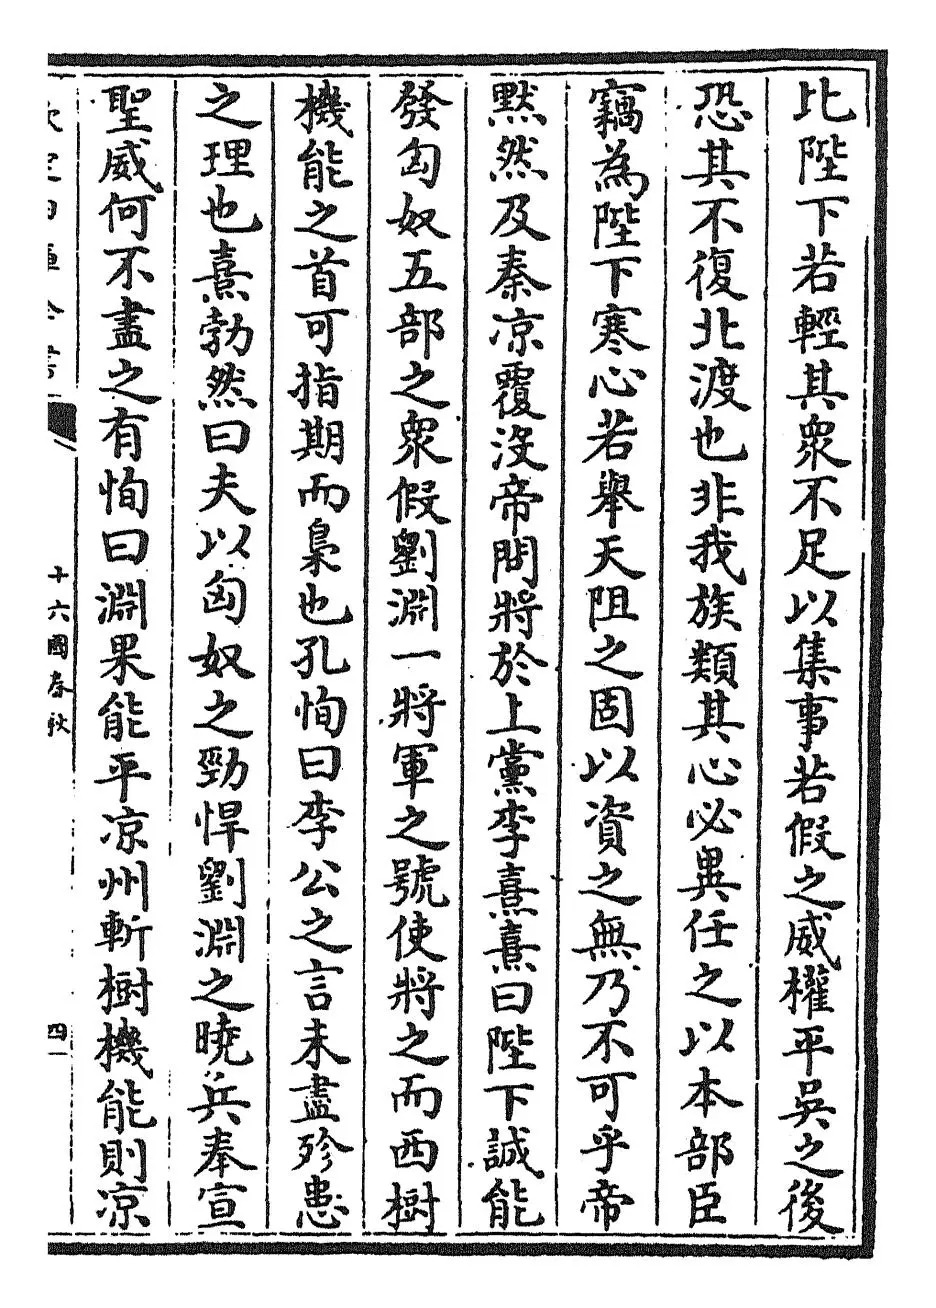 比陛下若輕其衆不足以集事若假之威權平吳之後
恐其不復北渡也非我族類其心必異任之以本部臣
竊為陛下寒心若舉天阻之固以資之無乃不可乎帝
默然及秦凉覆没帝問將於上黨李憙憙曰陛下誠能
發匈奴五部之衆假劉淵一將軍之號使將之而西樹
機能之首可指期而梟也孔恂曰李公之言未盡殄患
之理也憙勃然曰夫以匈奴之勁悍劉淵之曉兵奉宣
聖威何不盡之有恂曰淵果能平凉州斬樹機能則凉
十六國春秋
四